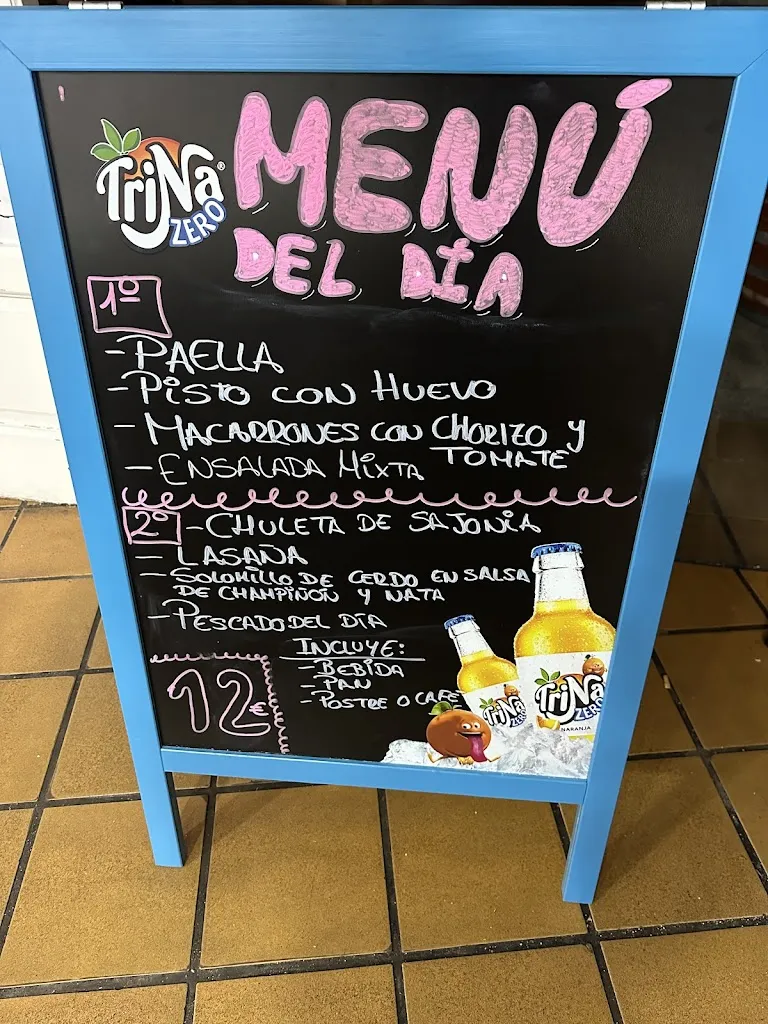 TriNa®
ZERO
MENÚ
DEL DÍA
1º
- PAELLA
- PISTO CON HUEVO
- MACARRONES CON CHORIZO Y
TOMATE
- ENSALADA MIXTA
2º - CHULETA DE SAJONIA
- LASAÑA
- SOLOMILLO DE CERDO EN SALSA
DE CHAMPIÑON Y NATA
- PESCADO DEL DÍA
INCLUYE:
- BEBIDA
- PAN
- POSTRE O CAFE
12€
TriNa
ZERO
TriNa
ZERO
NARANJA